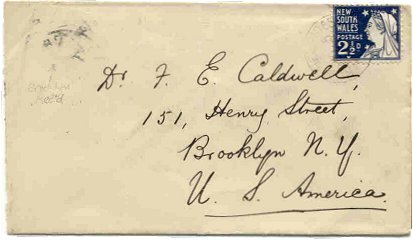 NEW
SOUTH
WALES
POSTAGE
2½D
Dr F. E. Caldwell,
151, Henry Street,
Brooklyn N.Y.
U. S. America.